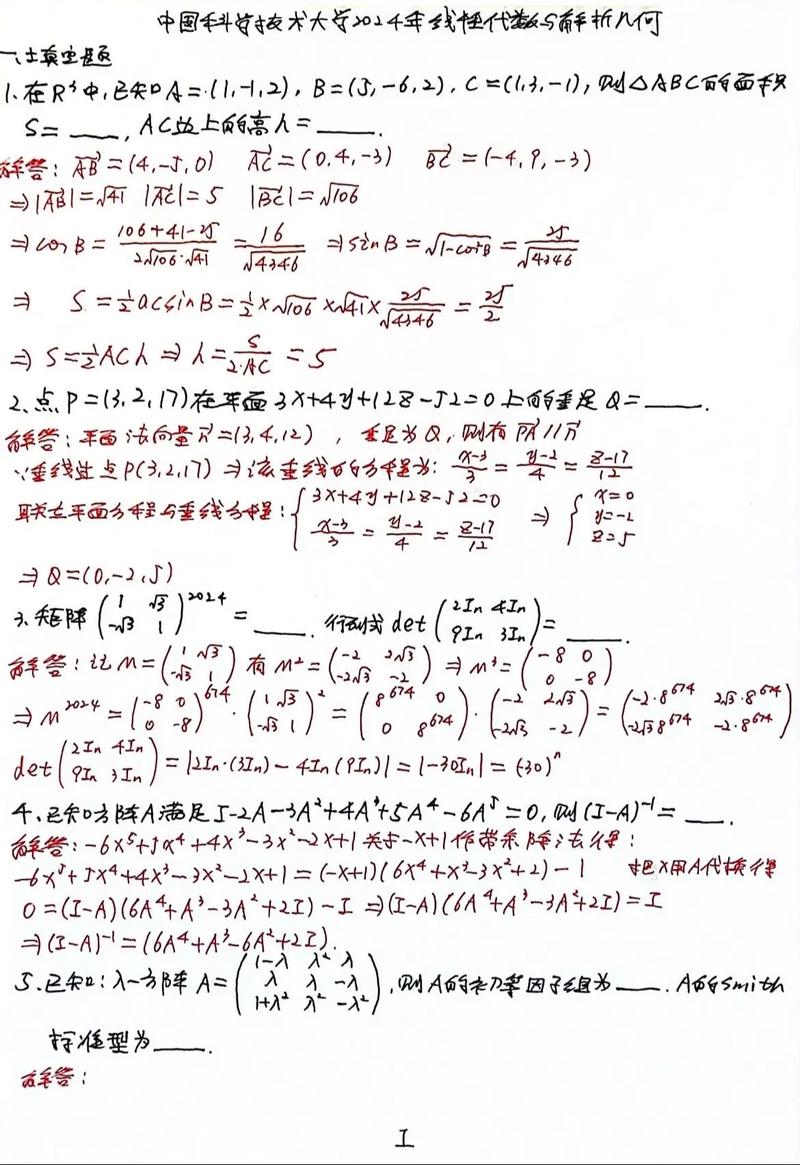 中国科学技术大学2024年线性代数与解析几何
一、填空题
1. 在R³中,已知A=(1,-1,2), B=(5,-6,2), C=(1,3,-1),则△ABC的面积
S=____, AC边上的高h=____.
解答: AB→=(4,-5,0) AC→=(0,4,-3) BC→=(-4,9,-3)
⇒|AB→|=√41 |AC→|=5 |BC→|=√106
⇒cosB=(106+41-25)/(2√106·√41)=16/√4346 ⇒sinB=√(1-cos²B)=25/√4346
⇒ S=½acsinB=½×√106×√41×25/√4346=25/2
⇒S=½ACh⇒h=S/(2·AC)=5
2、点P=(3,2,17)在平面3x+4y+12z-52=0上的垂足Q=____.
解答:平面法向量n→=(3,4,12),垂足为Q,则有PQ→//n→
∵垂线过点P(3,2,17)⇒该垂线的方程为: (x-3)/3=(y-2)/4=(z-17)/12
联立平面方程与垂线方程:{3x+4y+12z-52=0 (x-3)/3=(y-2)/4=(z-17)/12 ⇒ {x=0 y=-2 z=5
⇒Q=(0,-2,5)
3、矩阵(1 √3 -√3 1)²⁰²⁴=____. 行列式det(2In 4In 9In 3In)=____.
解答:记M=(1 √3 -√3 1)有M²=(-2 2√3 -2√3 -2)⇒M³=(-8 0 0 -8)
⇒M²⁰²⁴=(-8 0 0 -8)⁶⁷⁴·(1 √3 -√3 1)²=(8⁶⁷⁴ 0 0 8⁶⁷⁴)·(-2 2√3 -2√3 -2)=(-2·8⁶⁷⁴ 2√3·8⁶⁷⁴ -2√3 8⁶⁷⁴ -2·8⁶⁷⁴)
det(2In 4In 9In 3In)=|2In·(3In)-4In(9In)|=|-30In|=(-30)ⁿ
4、已知方阵A满足I-2A-3A²+4A³+5A⁴-6A⁵=0,则(I-A)⁻¹=____.
解答:-6x⁵+5x⁴+4x³-3x²-2x+1关于-x+1作带余除法得:
-6x⁵+5x⁴+4x³-3x²-2x+1=(-x+1)(6x⁴+x³-3x²+2)-1 把x用A代换得
0=(I-A)(6A⁴+A³-3A²+2I)-I⇒(I-A)(6A⁴+A³-3A²+2I)=I
⇒(I-A)⁻¹=(6A⁴+A³-6A²+2I).
5、已知:λ-方阵A=(1-λ λ² λ λ λ -λ 1+λ² λ² -λ²),则A的初等因子组为____. A的Smith
标准型为____.
解答:
I